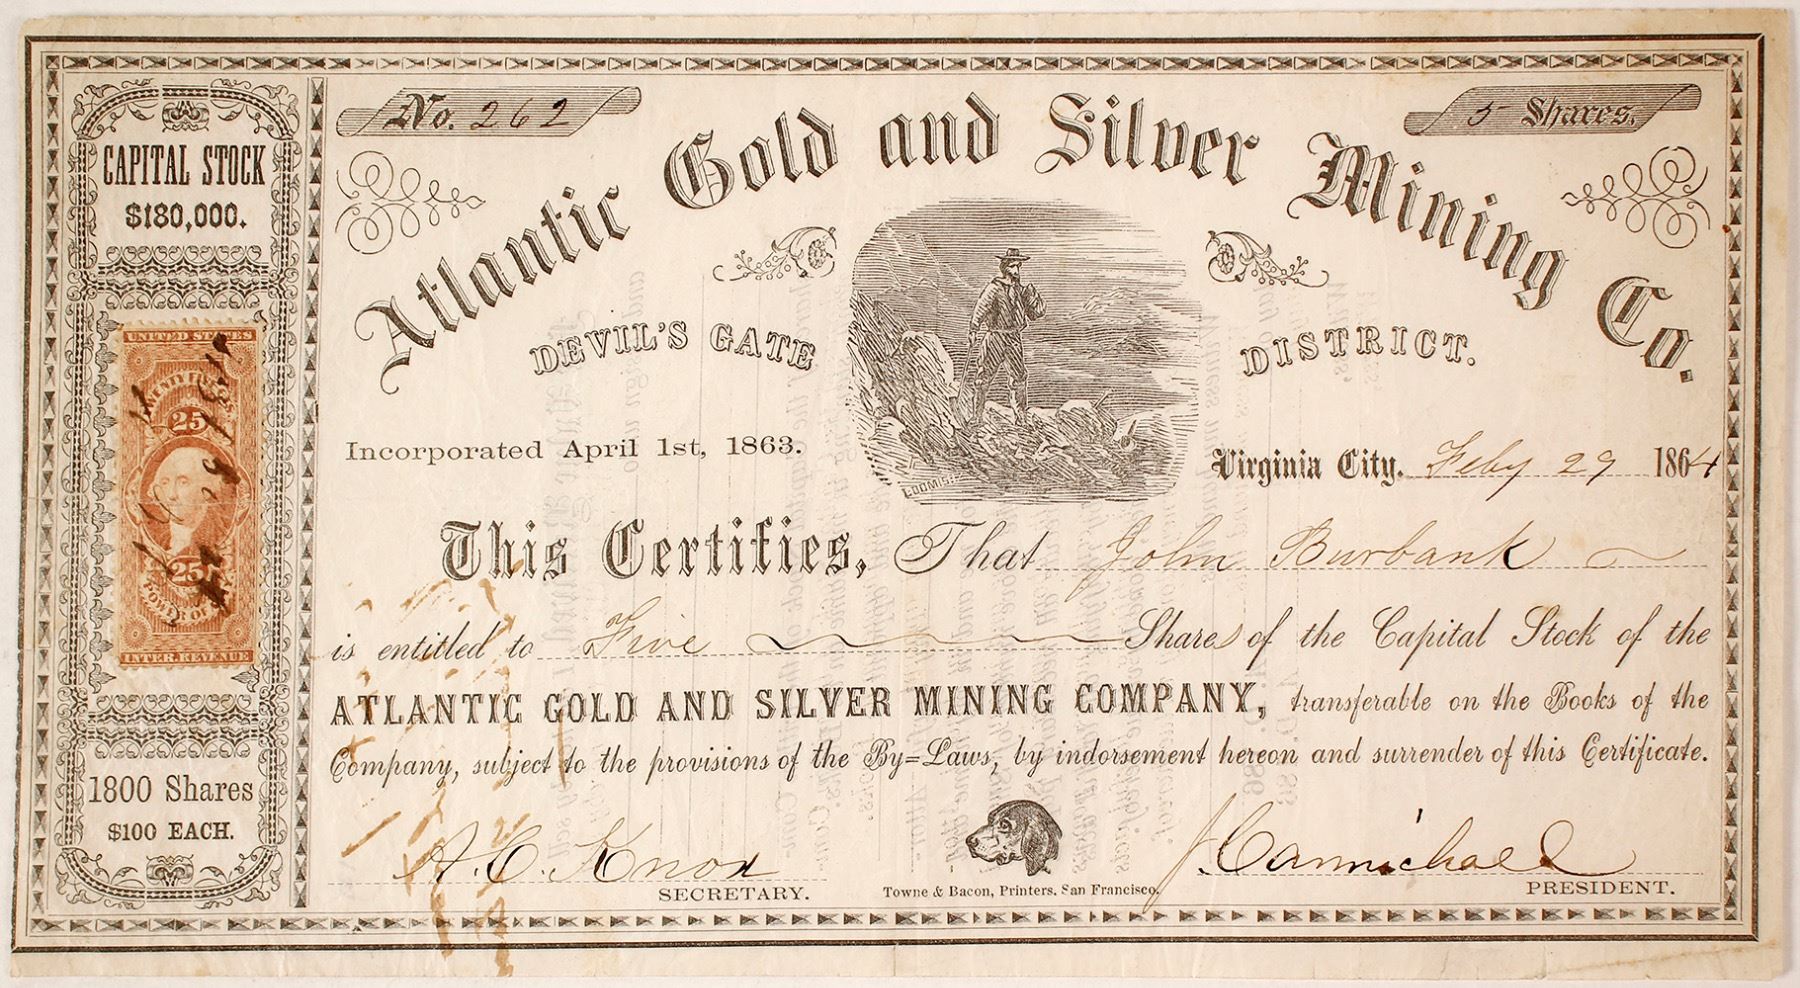 CAPITAL STOCK
$180,000.
UNITED STATES
25
25
POWER OF
INTER. REVENUE
1800 Shares
$100 EACH.
No. 262
5 Shares.
Atlantic Gold and Silver Mining Co.
DEVIL'S GATE DISTRICT.
Incorporated April 1st, 1863.
LOOMIS.
Virginia City. Feby 29 1864
This Certifies, That John Burbank
is entitled to Five Shares of the Capital Stock of the
ATLANTIC GOLD AND SILVER MINING COMPANY, transferable on the Books of the
Company, subject to the provisions of the By=Laws, by indorsement hereon and surrender of this Certificate.
A. C. Knox
SECRETARY.
Towne & Bacon, Printers. San Francisco.
J. Carmichael
PRESIDENT.